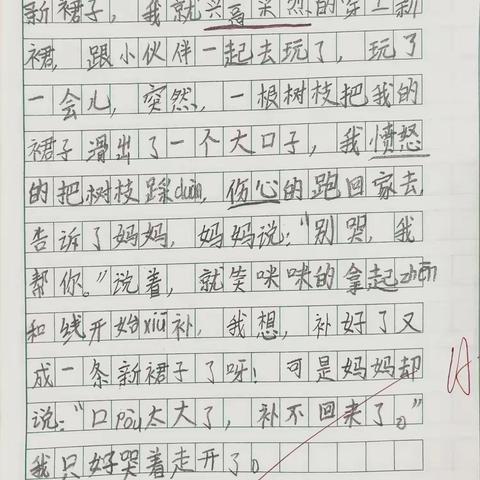 新裙子，我就兴高采烈的穿上新
裙，跟小伙伴一起去玩了，玩了
一会儿，突然，一根树枝把我的
裙子滑出了一个大口子，我愤怒
的把树枝踩duàn，伤心的跑回家去，
告诉了妈妈，妈妈说：“别哭，我
帮你。”说着，就笑咪咪的拿起zhēn
和线开始xiū补，我想，补好了又
成一条新裙子了呀！可是妈妈却
说：“口pòu太大了，补不回来了。”
我只好哭着走开了。
A